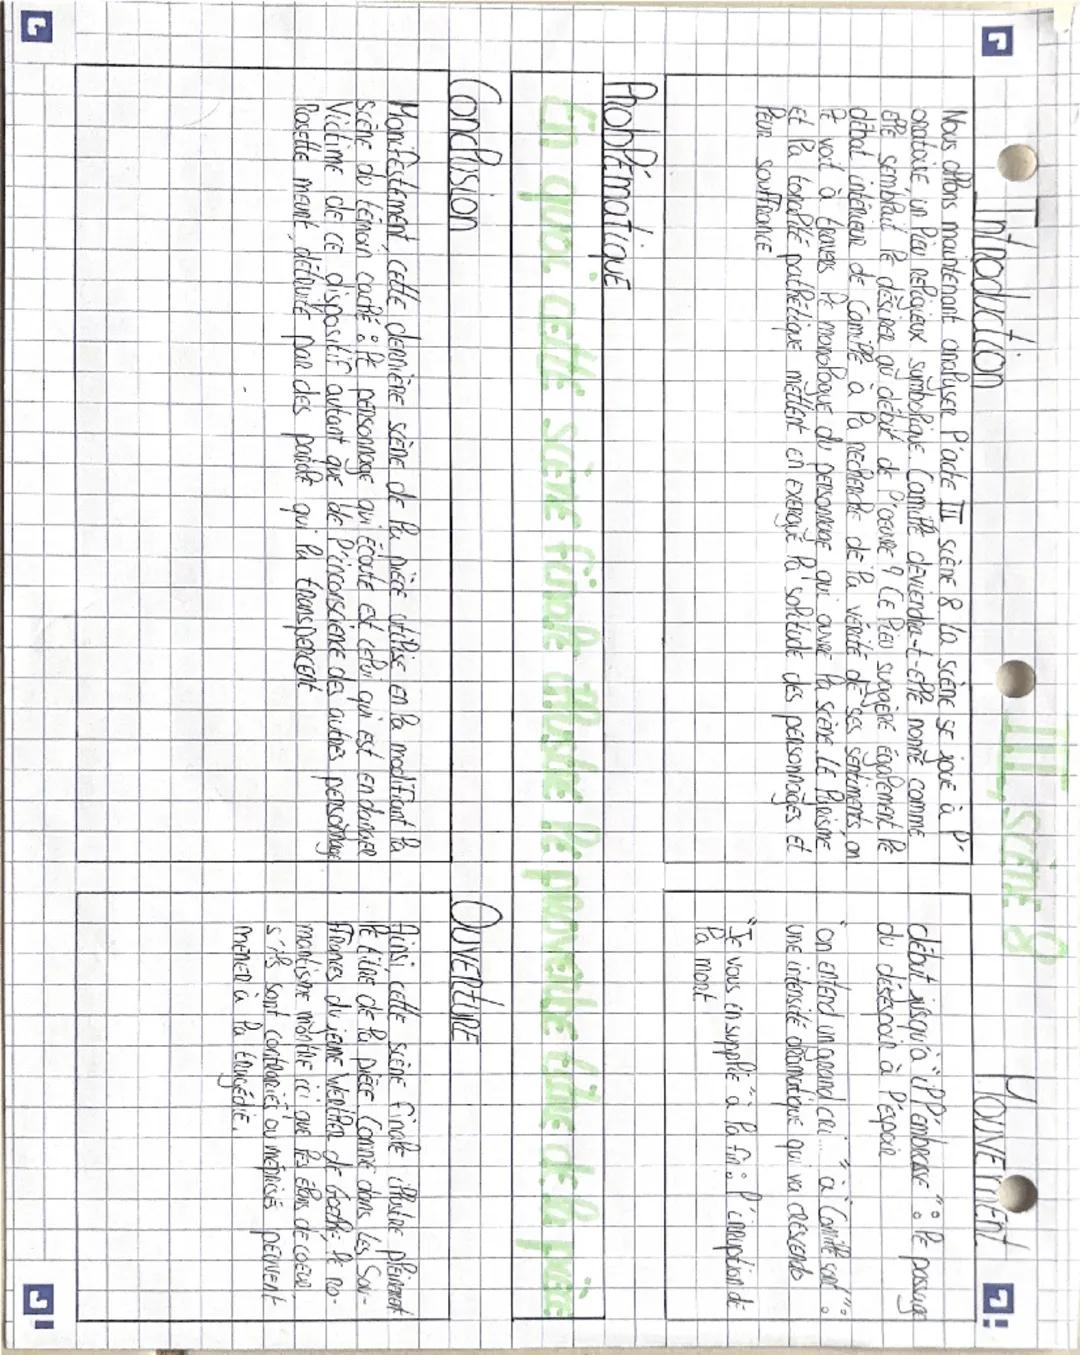 III, scène 8
Introduction
Nous allons maintenant analyser l'acte III scène 8 la scène se joue à l'
oratoire un lieu religieux symbolique Camille deviendra-t-elle nonne comme
elle semblait le désirer au début de l'oeuvre ? Ce lieu suggère également le
débat intérieur de Camille à la recherche de la vérité de ses sentiments, on
le voit à travers le monologue du personnage qui ouvre la scène. Le lyrisme
et la tonalité pathétique mettent en exergue la solitude des personnages et
leur souffrance
Mouvement
début jusqu'à "il l'embrasse" : le passage
du désespoir à l'espoir
"on entend un grand cri..." à "Camille sort" :
une intensité dramatique qui va crescendo
"Je vous en supplie" à la fin : l'irruption de
la mort
Problématique
En quoi cette scène finale illustre le proverbe titre de la pièce
Conclusion
Manifestement, cette dernière scène de la pièce utilise en la modifiant la
scène du témoin caché : le personnage qui écoute est celui qui est en danger
Victime de ce dispositif autant que de l'inconscience des autres personnage
Rosette meurt, détruite par des parole qui la transpercent
Ouverture
Ainsi, cette scène finale illustre pleinement
le titre de la pièce Comme dans les Sou-
ffrances du jeune Werther de Goethe, le ro-
mantisme montre ici que les élans de coeur,
s'ils sont contrariés ou méprisés peuvent
mener à la tragédie.